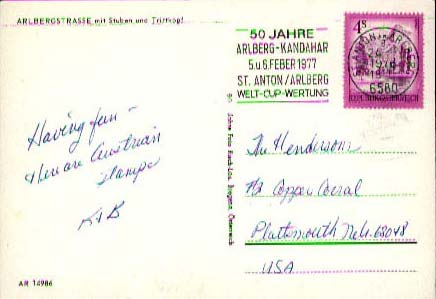 ARLBERGSTRASSE mit Stuben und Trittkopf
50 JAHRE
ARLBERG-KANDAHAR
5.u.6.FEBER 1977
ST. ANTON/ARLBERG
WELT-CUP-WERTUNG
4s
REPUBLIK ÖSTERREICH
6580
Having fun -
Here are Austrian
stamps
K+B
The Hendersons
Copper Corral
Plattsmouth Neb. 68048
USA
Foto Bregenz, Österreich
AR 14986